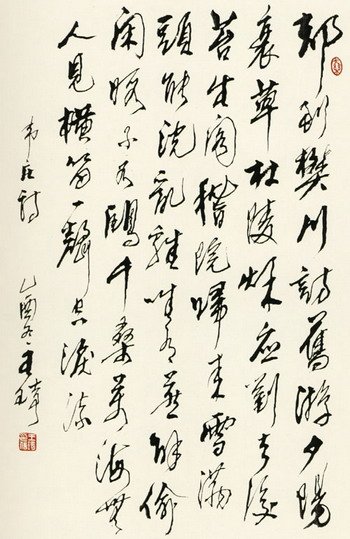 卻到樊川訪舊游夕陽
衰草杜陵秋应劉去後
苔生阁嵇阮歸來雪滿
頭能说亂離唯有燕解偷
闲暇不如鷗千桑萬海無
人見橫笛一聲空淚流
韦庄詩 乙酉冬